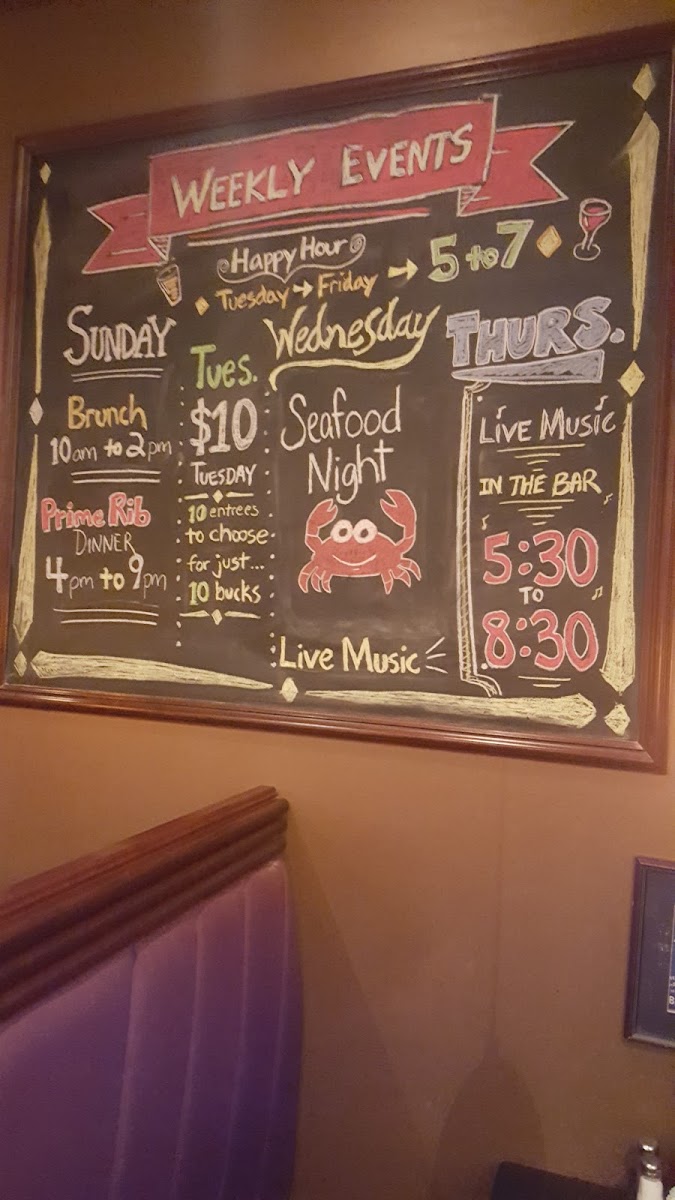 WEEKLY EVENTS
Happy Hour
Tuesday → Friday → 5 to 7
SUNDAY
Brunch
10am to 2pm
Prime Rib
DINNER
4pm to 9pm
Tues.
$10
TUESDAY
10 entrees
to choose
for just...
10 bucks
Wednesday
Seafood
Night
Live Music
THURS.
LIVE MUSIC
IN THE BAR
5:30
TO
8:30